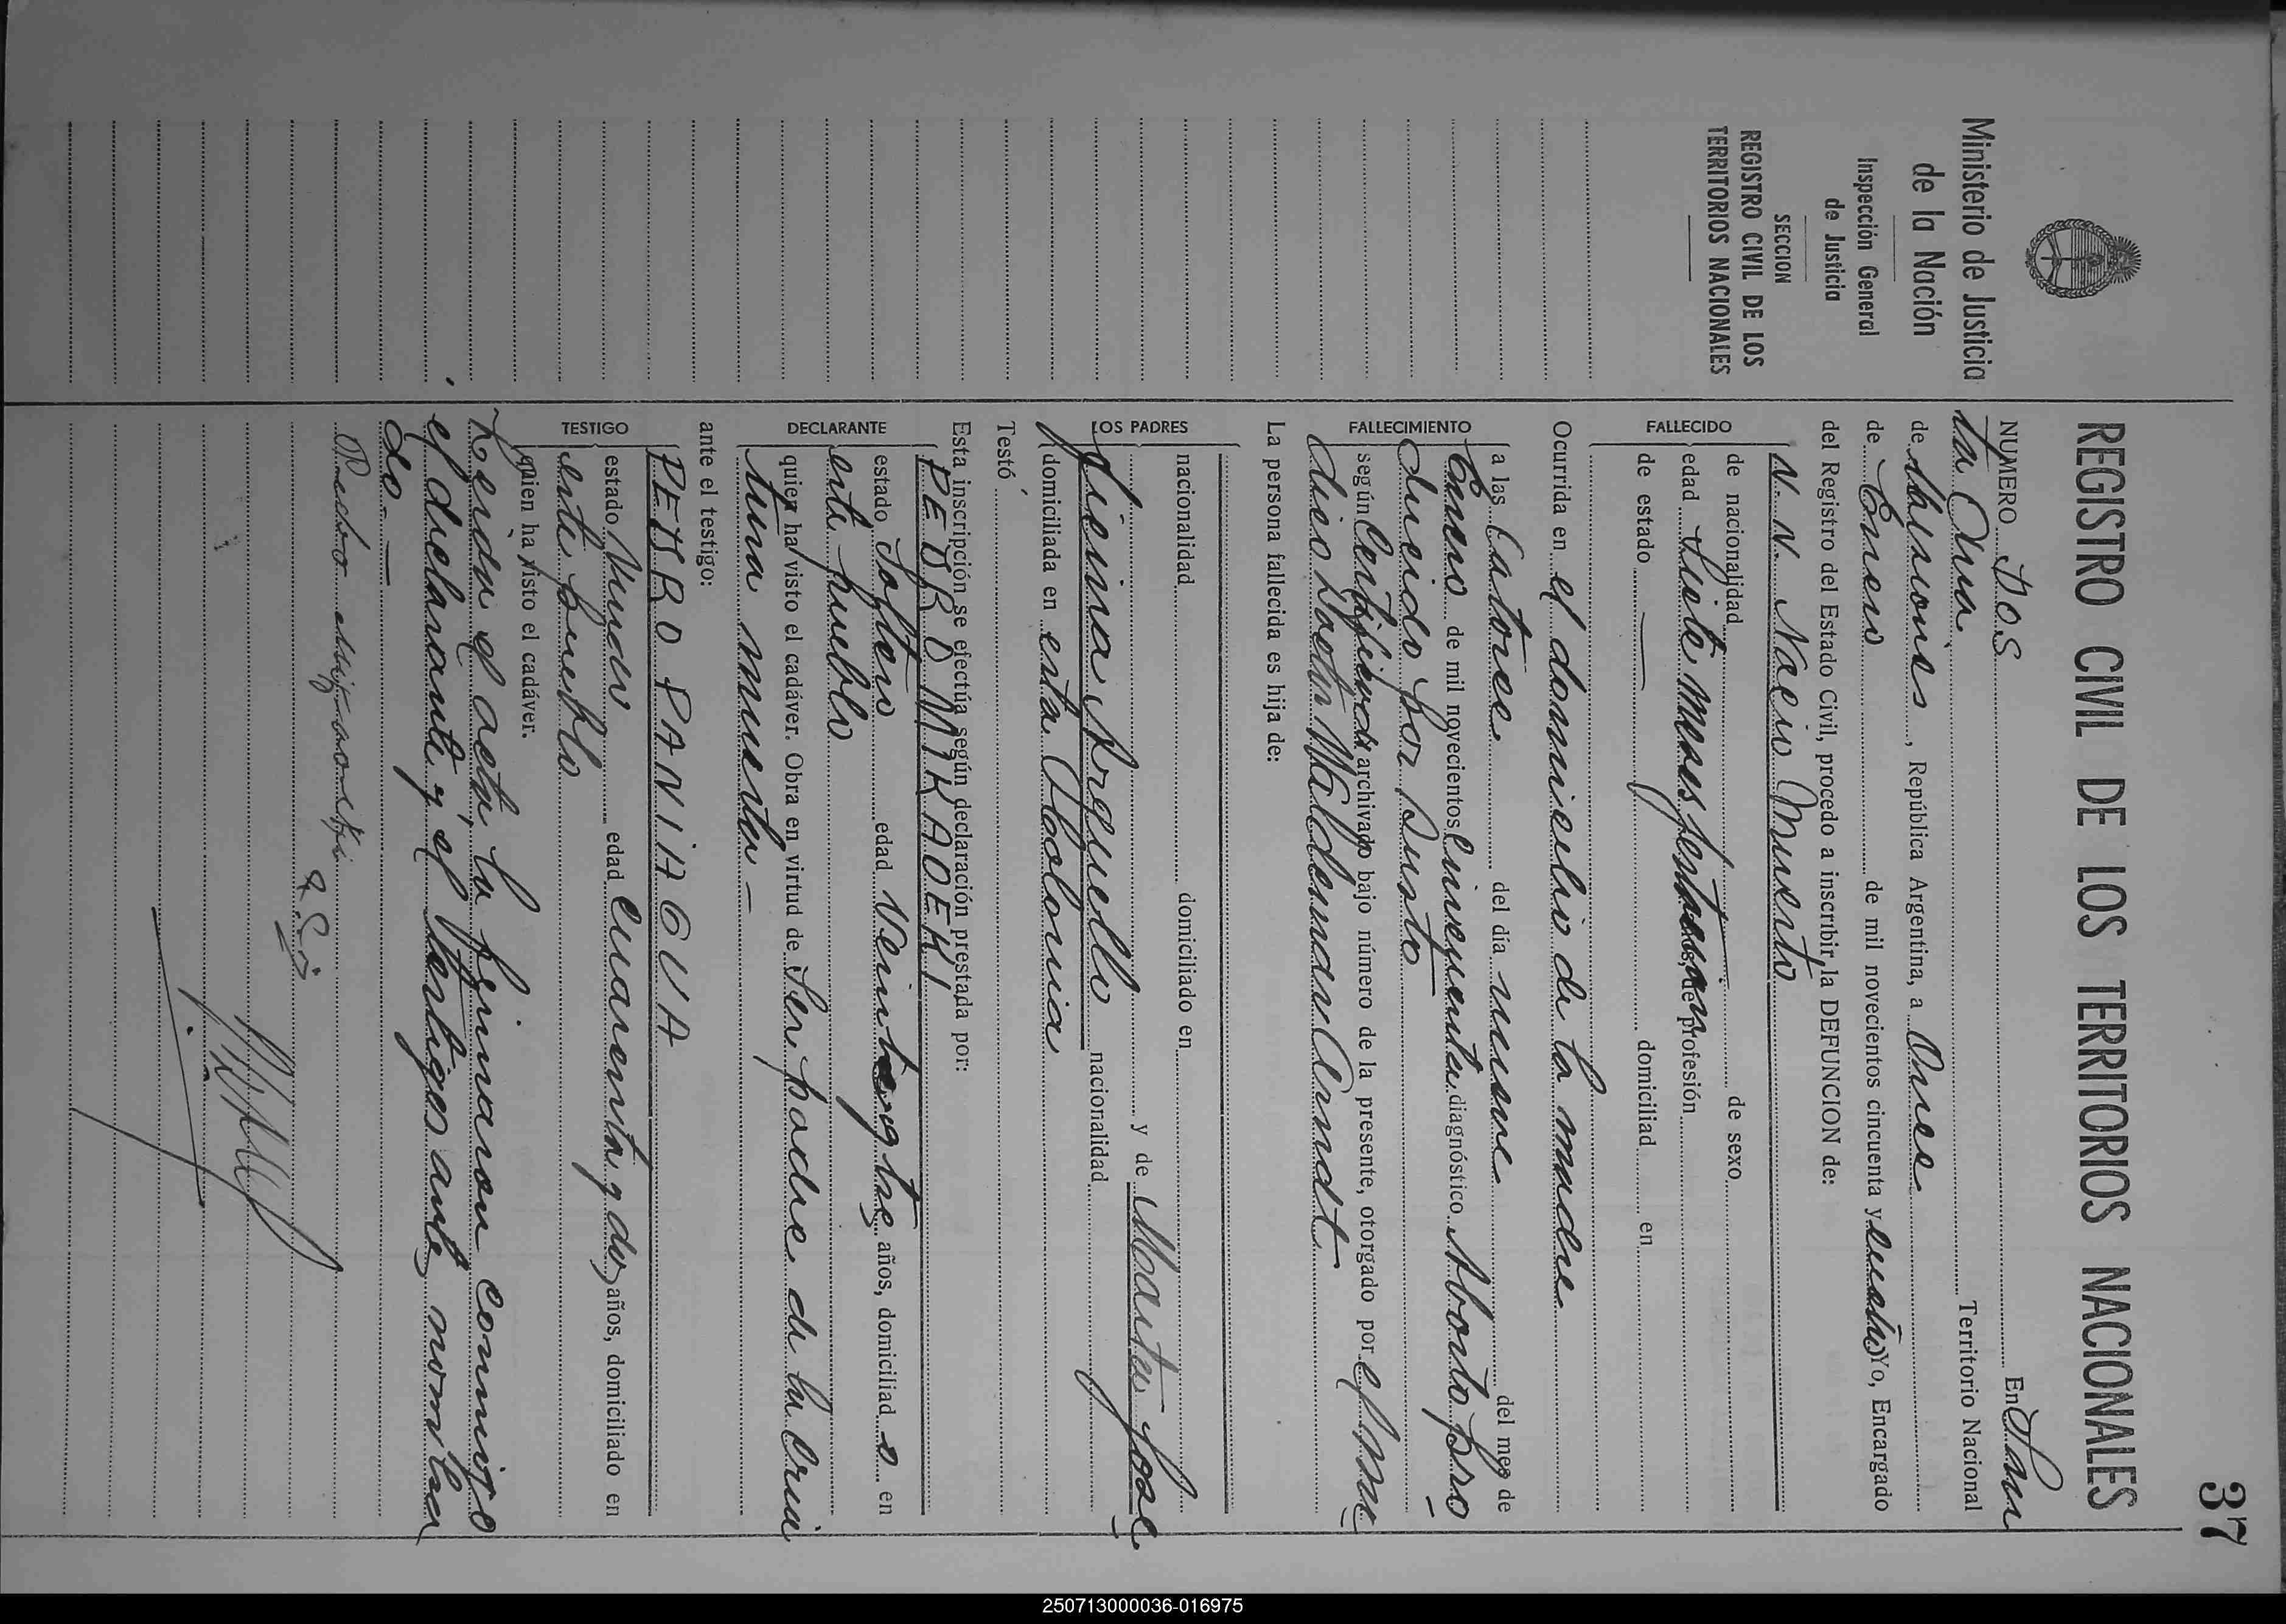 37
REGISTRO CIVIL DE LOS TERRITORIOS NACIONALES
Ministerio de Justicia
de la Nación
Inspección General
de Justicia
SECCION
REGISTRO CIVIL DE LOS
TERRITORIOS NACIONALES
NUMERO DOS En San
ta Ana Territorio Nacional
de Misiones, República Argentina, a Once
de Enero de mil novecientos cincuenta y cuatro Yo, Encargado
del Registro del Estado Civil, procedo a inscribir la DEFUNCION de:
FALLECIDO
N. N. Nacio Muerto
de nacionalidad de sexo
edad Siete meses de profesión
de estado — domiciliad en
Ocurrida en el domicilio de la madre
FALLECIMIENTO
a las Catorce del día nueve del mes de
Enero de mil novecientos cincuenta diagnóstico Aborto pro
ducido por susto
según Certificado archivado bajo número de la presente, otorgado por el me
dico Doctor Waldemar Arndt
La persona fallecida es hija de:
LOS PADRES
nacionalidad domiciliado en
y de Marta Jose
fina Arguello nacionalidad
domiciliada en esta Colonia
Testó
Esta inscripción se efectúa según declaración prestada por:
DECLARANTE
PEDRO
estado Soltero edad Veinte y tres años, domiciliad o en
este pueblo
quien ha visto el cadáver. Obra en virtud de Ser padre de la cria
tura muerta —
ante el testigo:
TESTIGO
PEDRO PANIAGUA
estado Viudo edad Cuarenta y dos años, domiciliado en
este pueblo
quien ha visto el cadáver.
Leida el acta la firmaron conmigo
el declarante y el testigos ante nombra
do. —
250713000036-016975